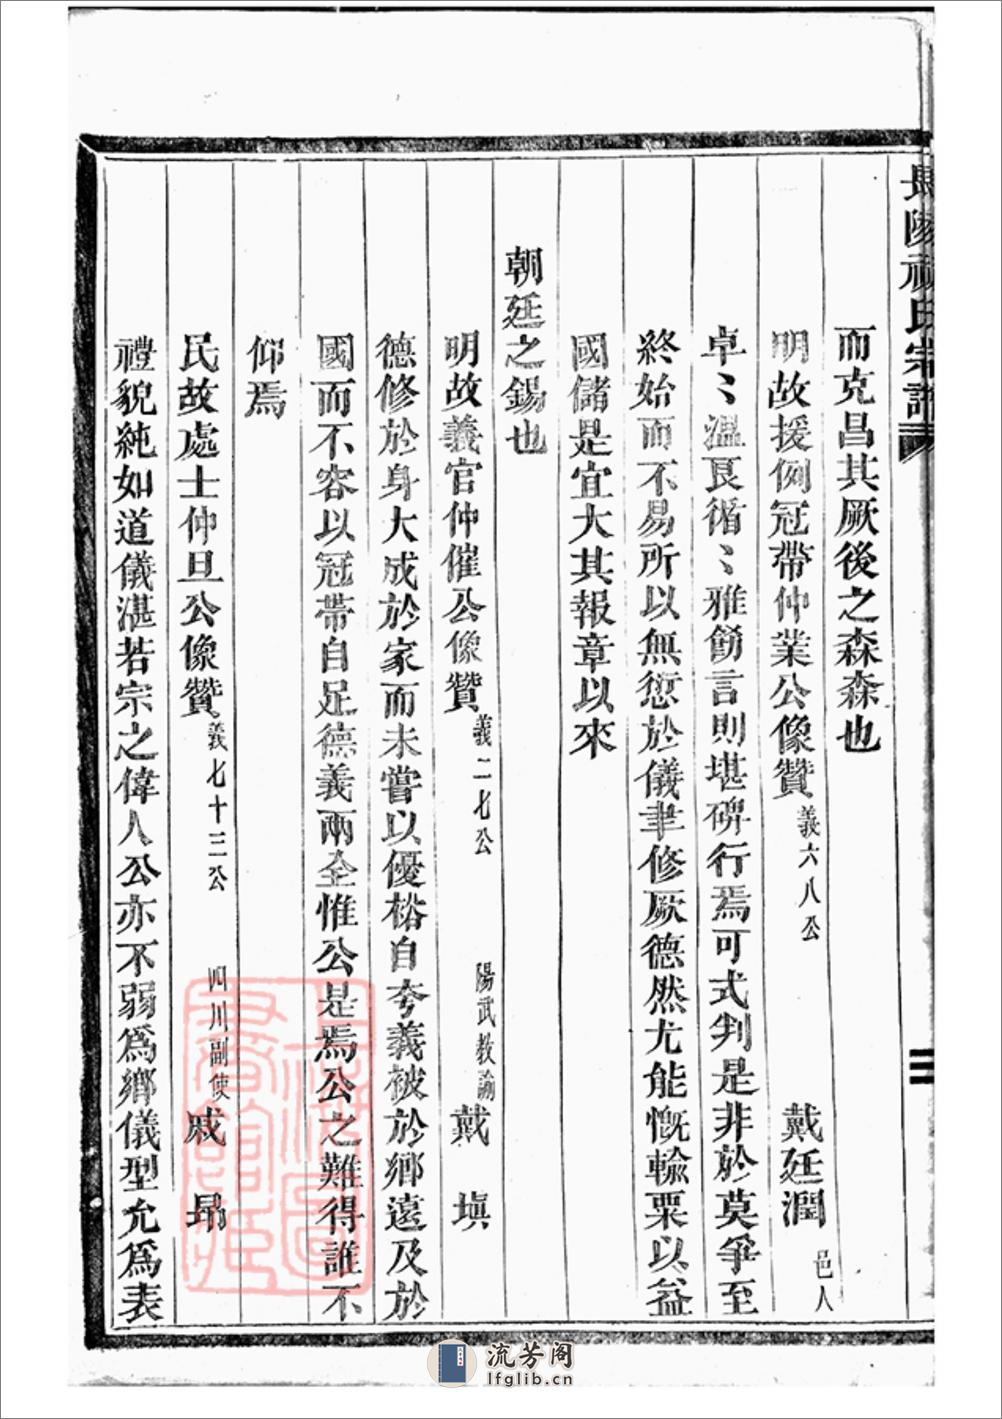 長陵祝氏宗譜
而克昌其厥後之森森也
明故援例冠帶仲業公像贊 義六八公 戴廷潤 邑人
卓〻溫艮循〻雅飭言則堪碑行焉可式判是非於莫爭至
終始而不易所以無愆於儀聿修厥德然尤能慨輸粟以益
國儲是宜大其報章以來
朝廷之錫也
明故義官仲催公像贊 義二七公 陽武教諭 戴 塤
德修於身大成於家而未嘗以優裕自夸義被於鄉遠及於
國而不吝以冠帶自足德義兩全惟公是焉公之難得誰不
仰焉
民故處士仲旦公像贊 義七十三公 四川副使 戚 昻
禮貌純如道儀湛若宗之偉人公亦不弱爲鄉儀型允爲表
上海圖
書館藏
流芳阁
lfglib.cn